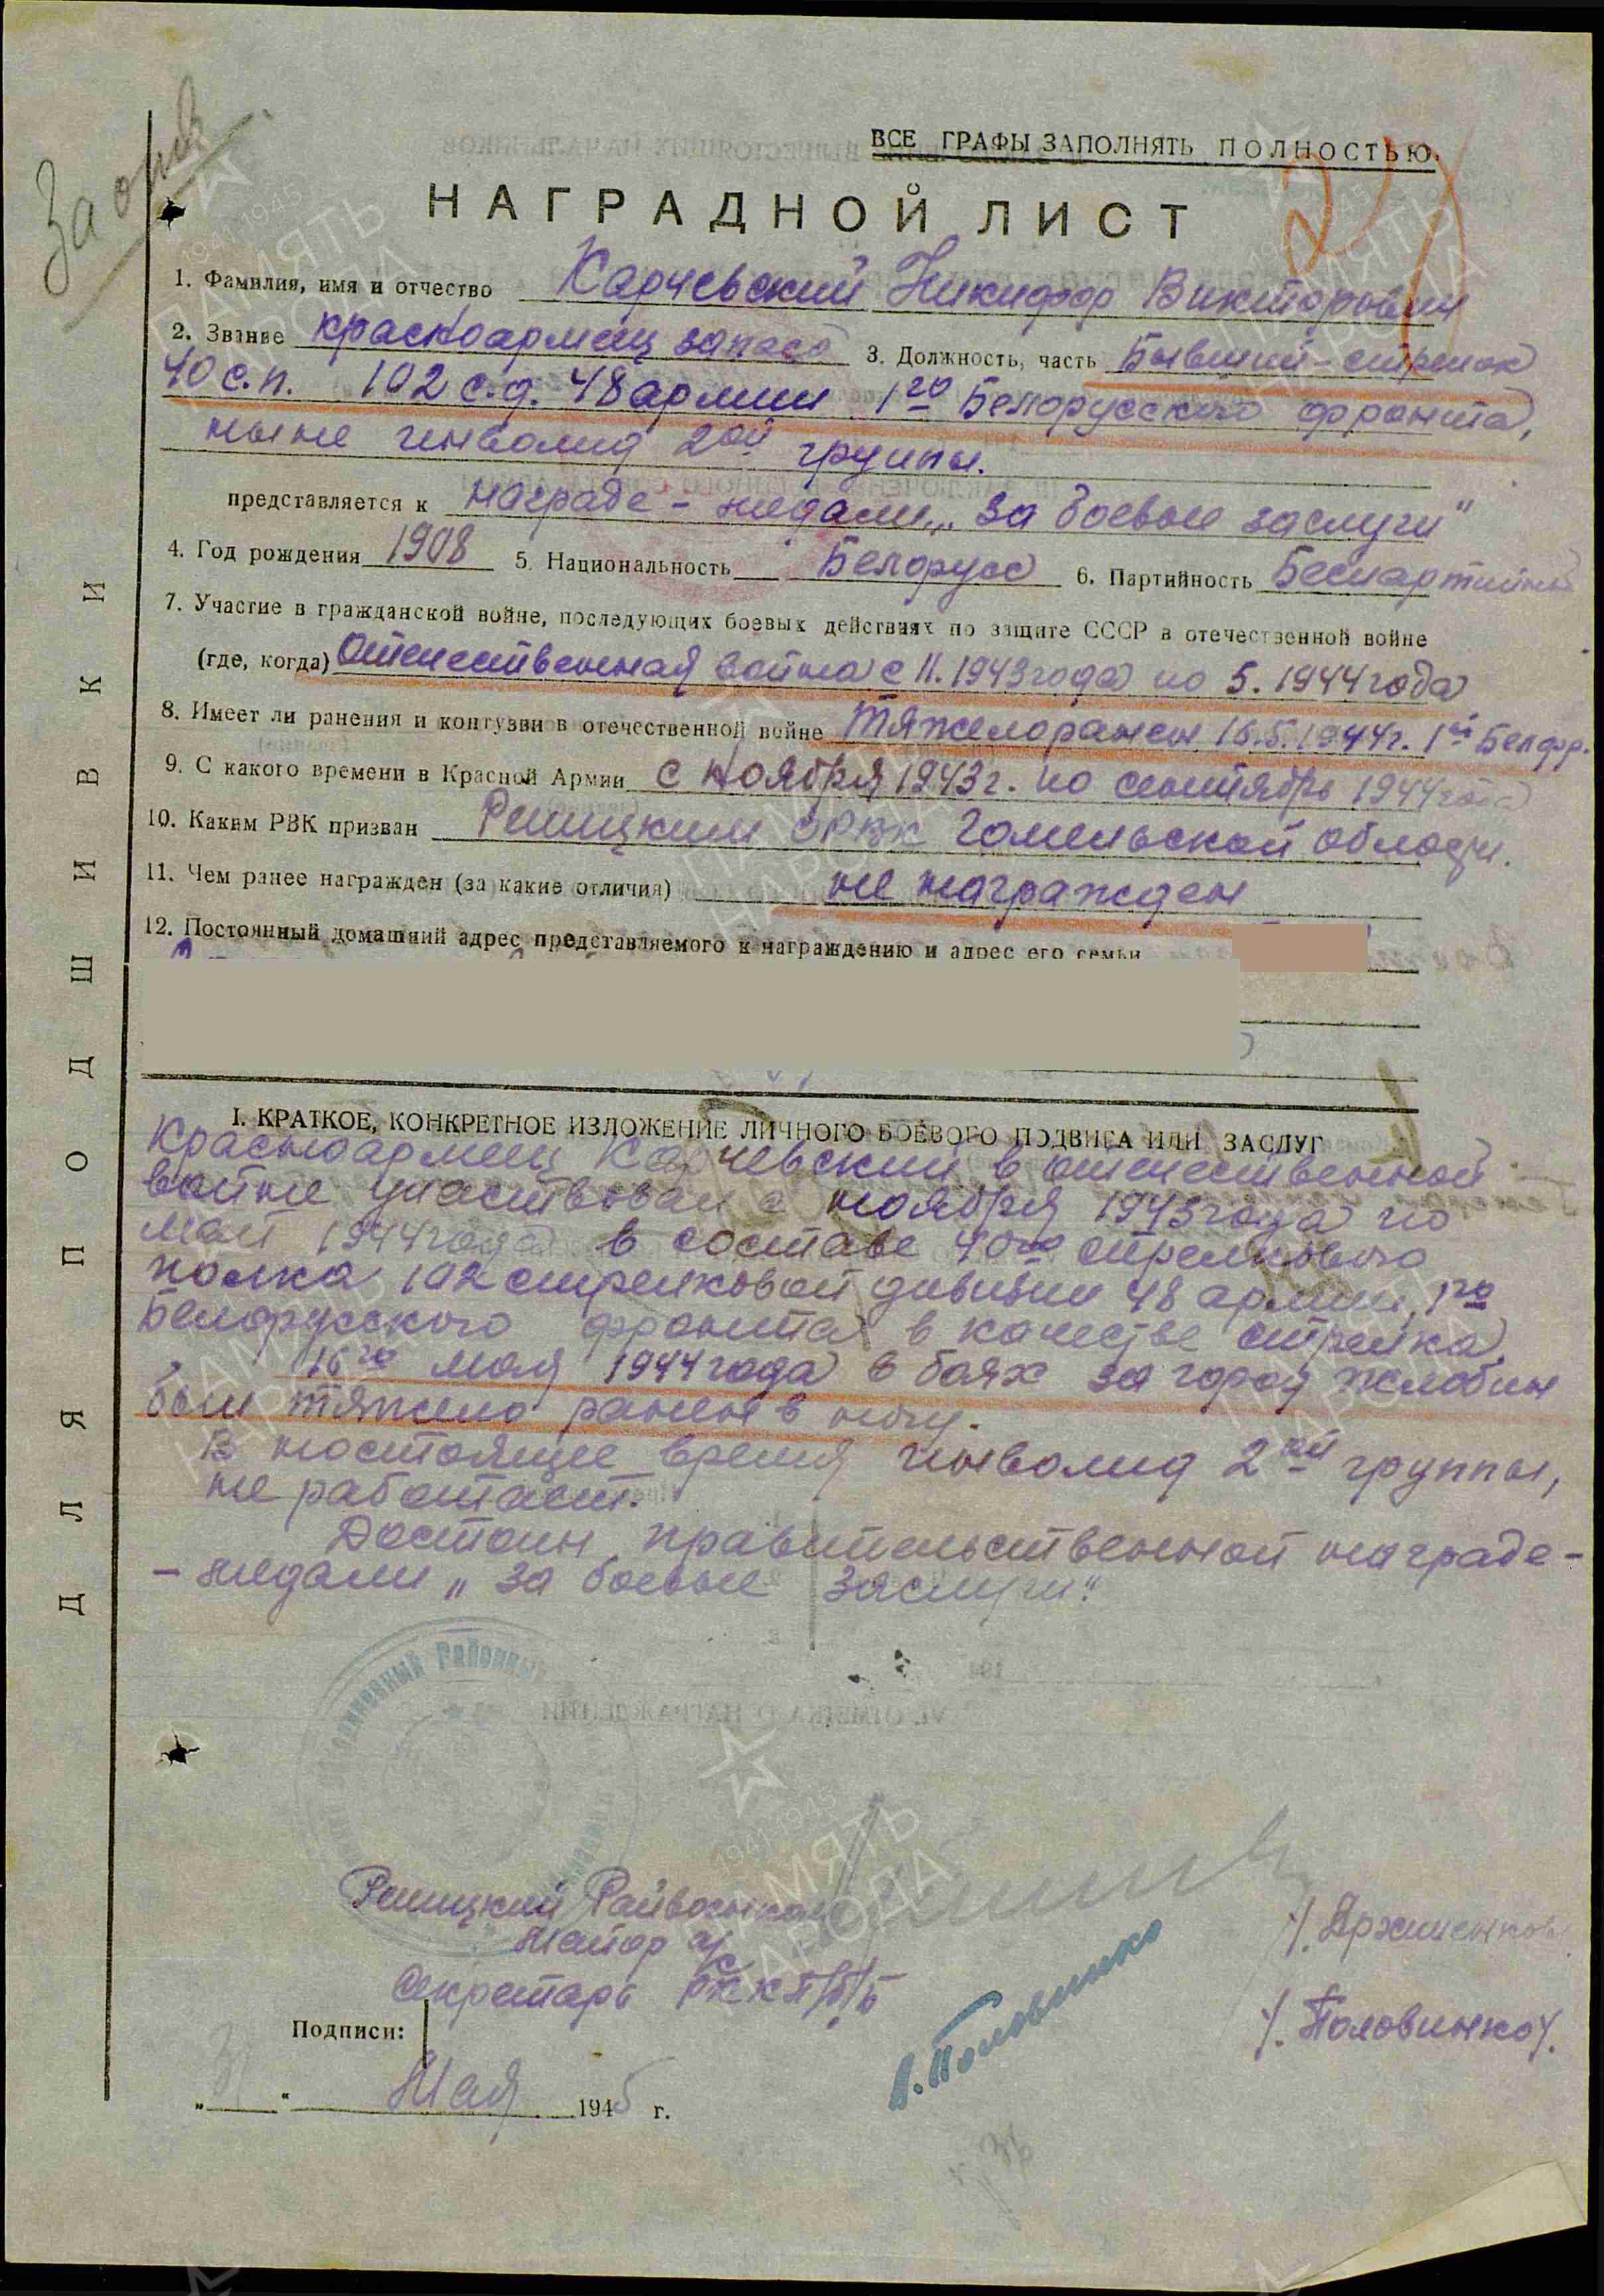 ВСЕ ГРАФЫ ЗАПОЛНЯТЬ ПОЛНОСТЬЮ.
НАГРАДНОЙ ЛИСТ
1. Фамилия, имя и отчество Карчевский Никифор Викторович
2. Звание красноармеец запаса 3. Должность, часть Бывший - стрелок
40 с.п. 102 с.д. 48 армии 1го Белорусского фронта,
ныне инвалид 2ой группы.
представляется к награде - медали „За боевые заслуги"
4. Год рождения 1908 5. Национальность Белорусс 6. Партийность Беспартийный
7. Участие в гражданской войне, последующих боевых действиях по защите СССР в отечественной войне
(где, когда) Отечественная война с 11.1943 года по 5.1944 года
8. Имеет ли ранения и контузии в отечественной войне Тяжело ранен 16.5.1944г. 1й Бел фр.
9. С какого времени в Красной Армии с ноября 1943 г. по сентябрь 1944 года
10. Каким РВК призван Речицким ОРВК Гомельской области.
11. Чем ранее награжден (за какие отличия) не награжден
12. Постоянный домашний адрес представляемого к награждению и адрес его семьи
I. КРАТКОЕ, КОНКРЕТНОЕ ИЗЛОЖЕНИЕ ЛИЧНОГО БОЕВОГО ПОДВИГА ИЛИ ЗАСЛУГ
Красноармеец Карчевский в отечественной
войне участвовал с ноября 1943 года по
май 1944 года в составе 40го стрелкового
полка 102 стрелковой дивизии 48 армии, 1го
Белорусского фронта в качестве стрелка.
16го мая 1944 года в боях за город Жлобин
был тяжело ранен в ногу.
В настоящее время инвалид 2ой группы,
не работает.
Достоин правительственной награде -
- медали „За боевые заслуги".
Речицкий Райвоенком
Майор а/с
Секретарь РК КП/б/Б
/. Половинко/.
В. Половинко
Подписи:
„ " Мая 1945 г.
ДЛЯ ПОДШИВКИ
ПАМЯТЬ НАРОДА
1941-1945